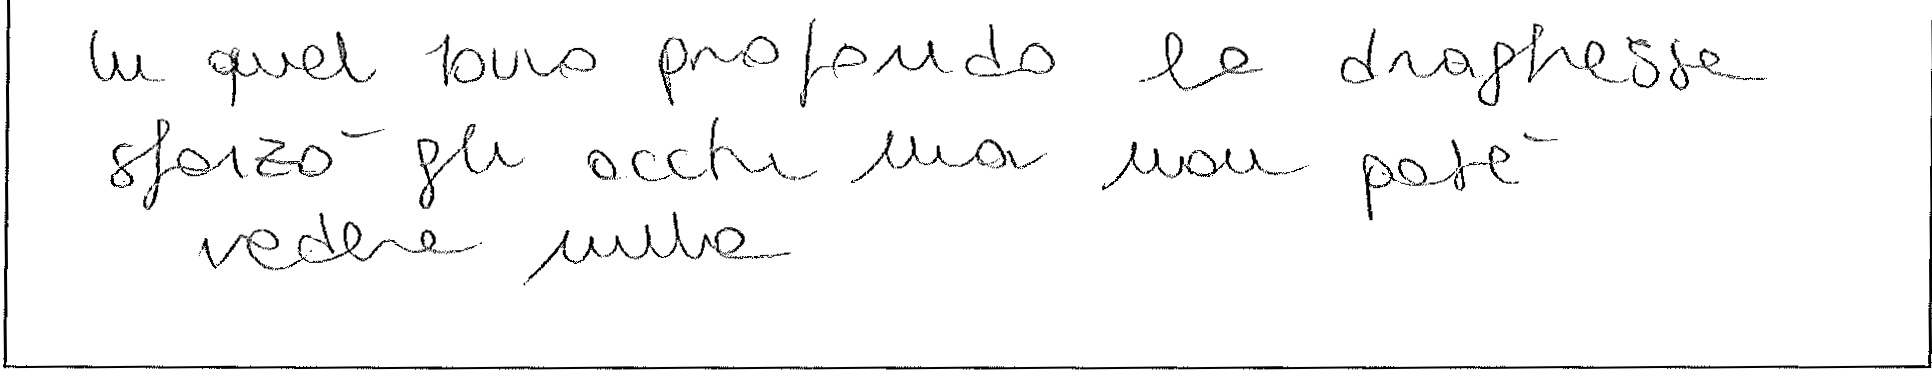 In quel sonno profondo la draghessa
sforzò gli occhi ma non poté
vedere nulla